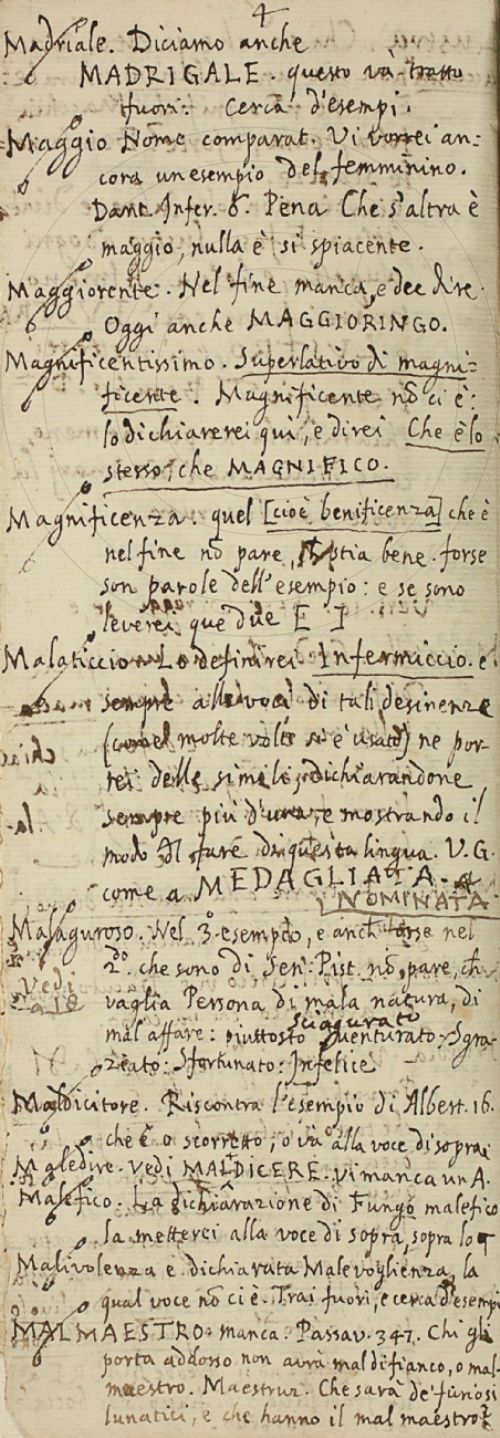 4
Madriale. Diciamo anche
MADRIGALE. questo và tratto
fuori. Cerca d'esempi.
Maggio Nome comparat. Vi vorrei an-
cora un esempio del femminino.
Dant. Infer. 6. Pena Che s'altra è
maggio, nulla è si spiacente.
Maggiorente. Nel fine manca, e dee dire.
Oggi anche MAGGIORINGO.
Magnificentissimo. Superlativo di magni-
ficente. Magnificente nō ci è:
lo dichiarerei qui, e direi Che è lo
stesso, che MAGNIFICO.
Magnificenza. quel [cioè benificenza] che è
nel fine nō pare, stia bene. forse
son parole dell'esempio: e se sono
leverei que due E I
Malaticcio Lo definirei Infermiccio. e
sempre alle voci di tali desinenze
(come molte volte si è usato) ne por-
rei delle simili, dichiarandone
sempre più d'una, e mostrando il
modo di fare di questa lingua. V.G.
come a MEDAGLIATA.
NOMINATA
Malaguroso. Nel 3.º esempio, e anch forse nel
2.º che sono di Sen. Pist. nō pare, ch
Vedi
a 18
vaglia Persona di mala natura, di
mal affare: piuttosto sciagurato
Sventurato: Sgra-
ziato: Sfortunato: Infelice
Maldicitore. Riscontra l'esempio di Albert. 16.
che è o scorretto, o va alla voce di sopra
Maledire. Vedi MALDICERE. vi manca un A.
Malefico. La dichiarazione di Fungo malefico
la metterei alla voce di sopra, sopra lo
Malivolenza è dichiarata Malevoglienza, la
qual voce nō ci è. Trai fuori, e cerca d'esempi
MALMAESTRO: manca. Passav. 347. Chi gli
porta addosso non avrà mal di fianco, o mal-
maestro. Maestruz. Che sarà de' furiosi
lunatici, e che hanno il mal maestro?